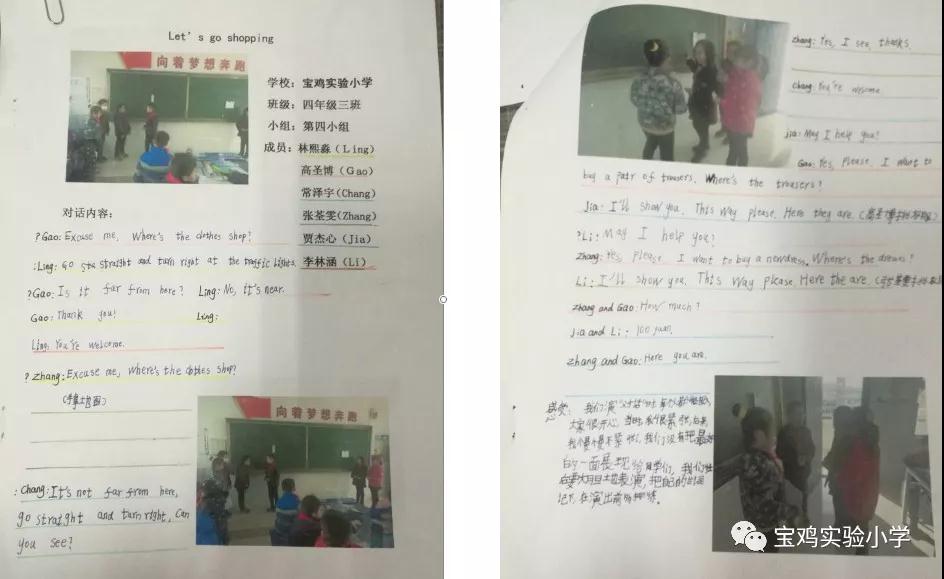 Let's go shopping
向着梦想奔跑
学校：宝鸡实验小学
班级：四年级三班
小组：第四小组
成员：林熙淼（Ling）
高圣博（Gao）
常泽宇(Chang)
张荃雯(Zhang)
贾杰心（Jia）
李林涵（Li）
对话内容：
?Gao: Excuse me, Where's the clothes shop?
:Ling: Go straight and turn right at the traffic lights.
?Gao: Is it far from here? Ling: No, it's near.
Gao: Thank you! Ling:
Ling: You're welcome.
? Zhang: Excuse me, where's the clothes shop?
向着梦想奔跑
: Chang: It's not far from here,
go straight and turn right, Can
you see?
Zhang: Yes, I see, thanks.
Chang: You're welcome.
Jia: May I help you!
Gao: Yes, Please. I want to
buy a pair of trousers. Where's the trousers?
Jia: I'll show you. This way please. Here they are.
?Li: May I help you?
Zhang: Yes, please. I want to buy a new dress. Where's the dresses?
Li: I'll show you. This way please. Here the are.
Zhang and Gao: How much?
Jia and Li: 100 yuan.
Zhang and Gao: Here you are.
感受：我们演
大家很开心，当时我很紧张，后来
我慢慢不紧张，我们没有把最好
的一面展现给同学们，我们
要大胆去表演，把自己的台词
记下，在演出前多排练。
宝鸡实验小学